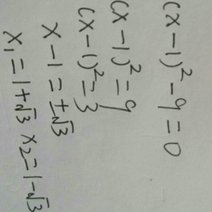 (x-1)²-9=0
(x-1)²=9
(x-1)²=3
x-1=±√3
x₁=1+√3 x₂=1-√3